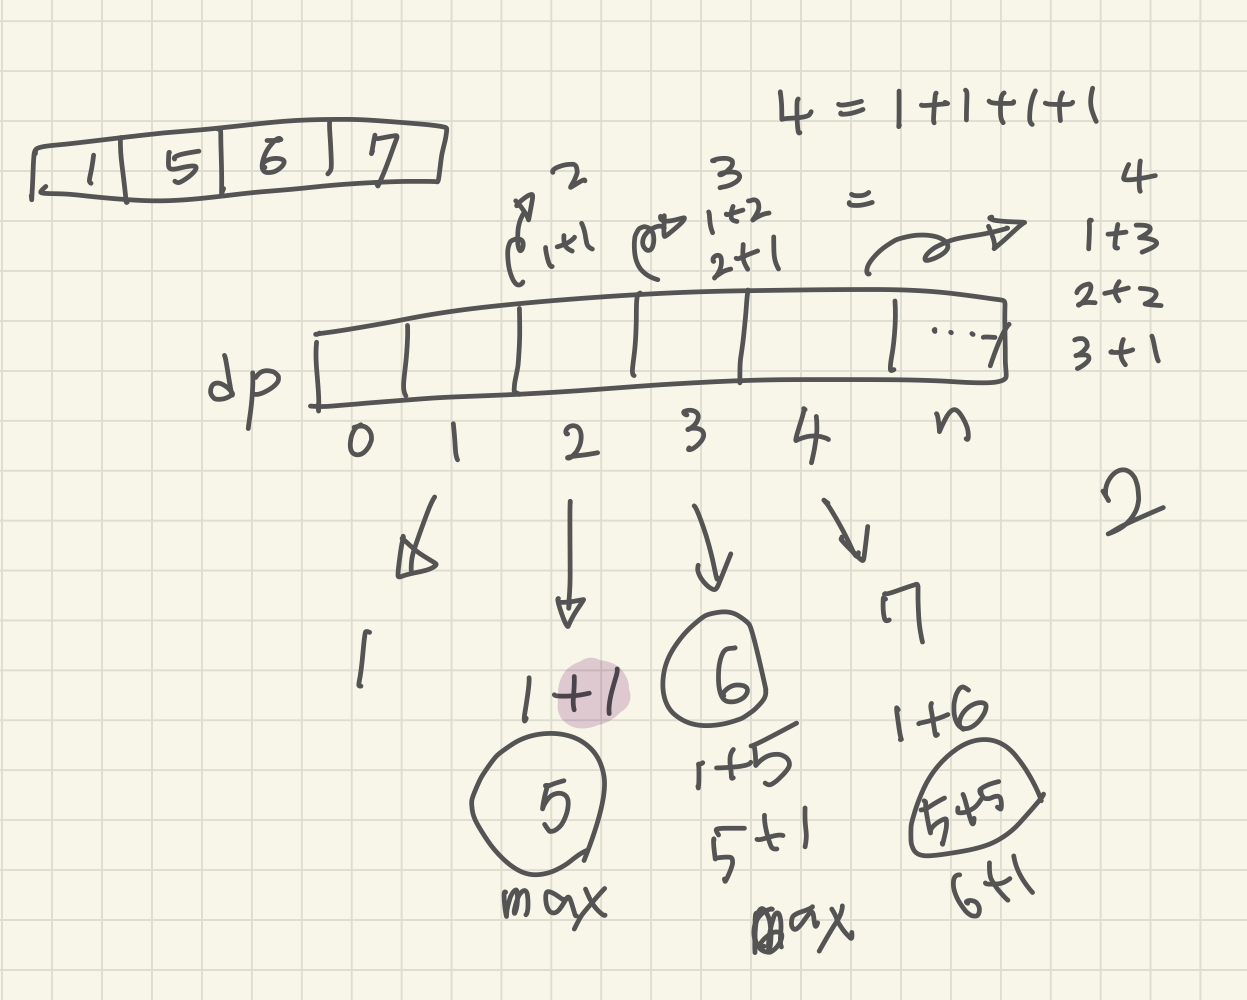 4 = 1+1+1+1
1 5 6 7
2
1+1
3
1+2
2+1
=
4
1+3
2+2
3+1
dp
0 1 2 3 4 n
2
1
1+1
5
max
6
1+5
5+1
max
7
1+6
5+5
6+1